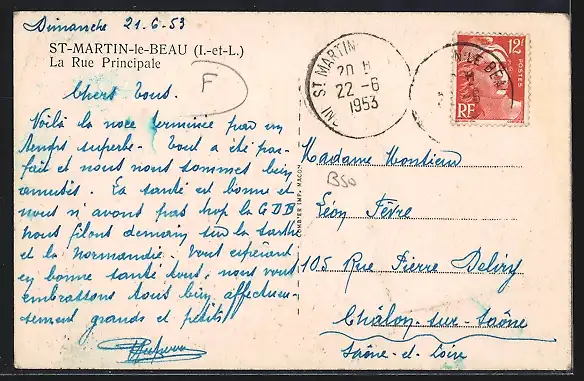 Dimanche 21.6.53
ST-MARTIN-le-BEAU (I.-et-L.)
La Rue Principale
F
Chers tous.
Voilà la noce terminée par un
temps superbe. Tout a été par-
fait et nous nous sommes bien
amusés. La santé est bonne et
nous n'avons pas trop la G.D.B
nous filons demain sur la Sarthe
et la Normandie. Vous espérant
en bonne santé tous, nous vous
embrassons tous bien affectueu-
sement grands et petits
ST MARTIN
20 H
22-6
1953
IN
N-LE-BEA
12F
POSTES
RF
COMBIER IMP. MACON
Madame Monsieur
B50
Léon Fèvre
105 Rue Pierre Deliry
Châlon-sur-Saône
Saône-et-Loire